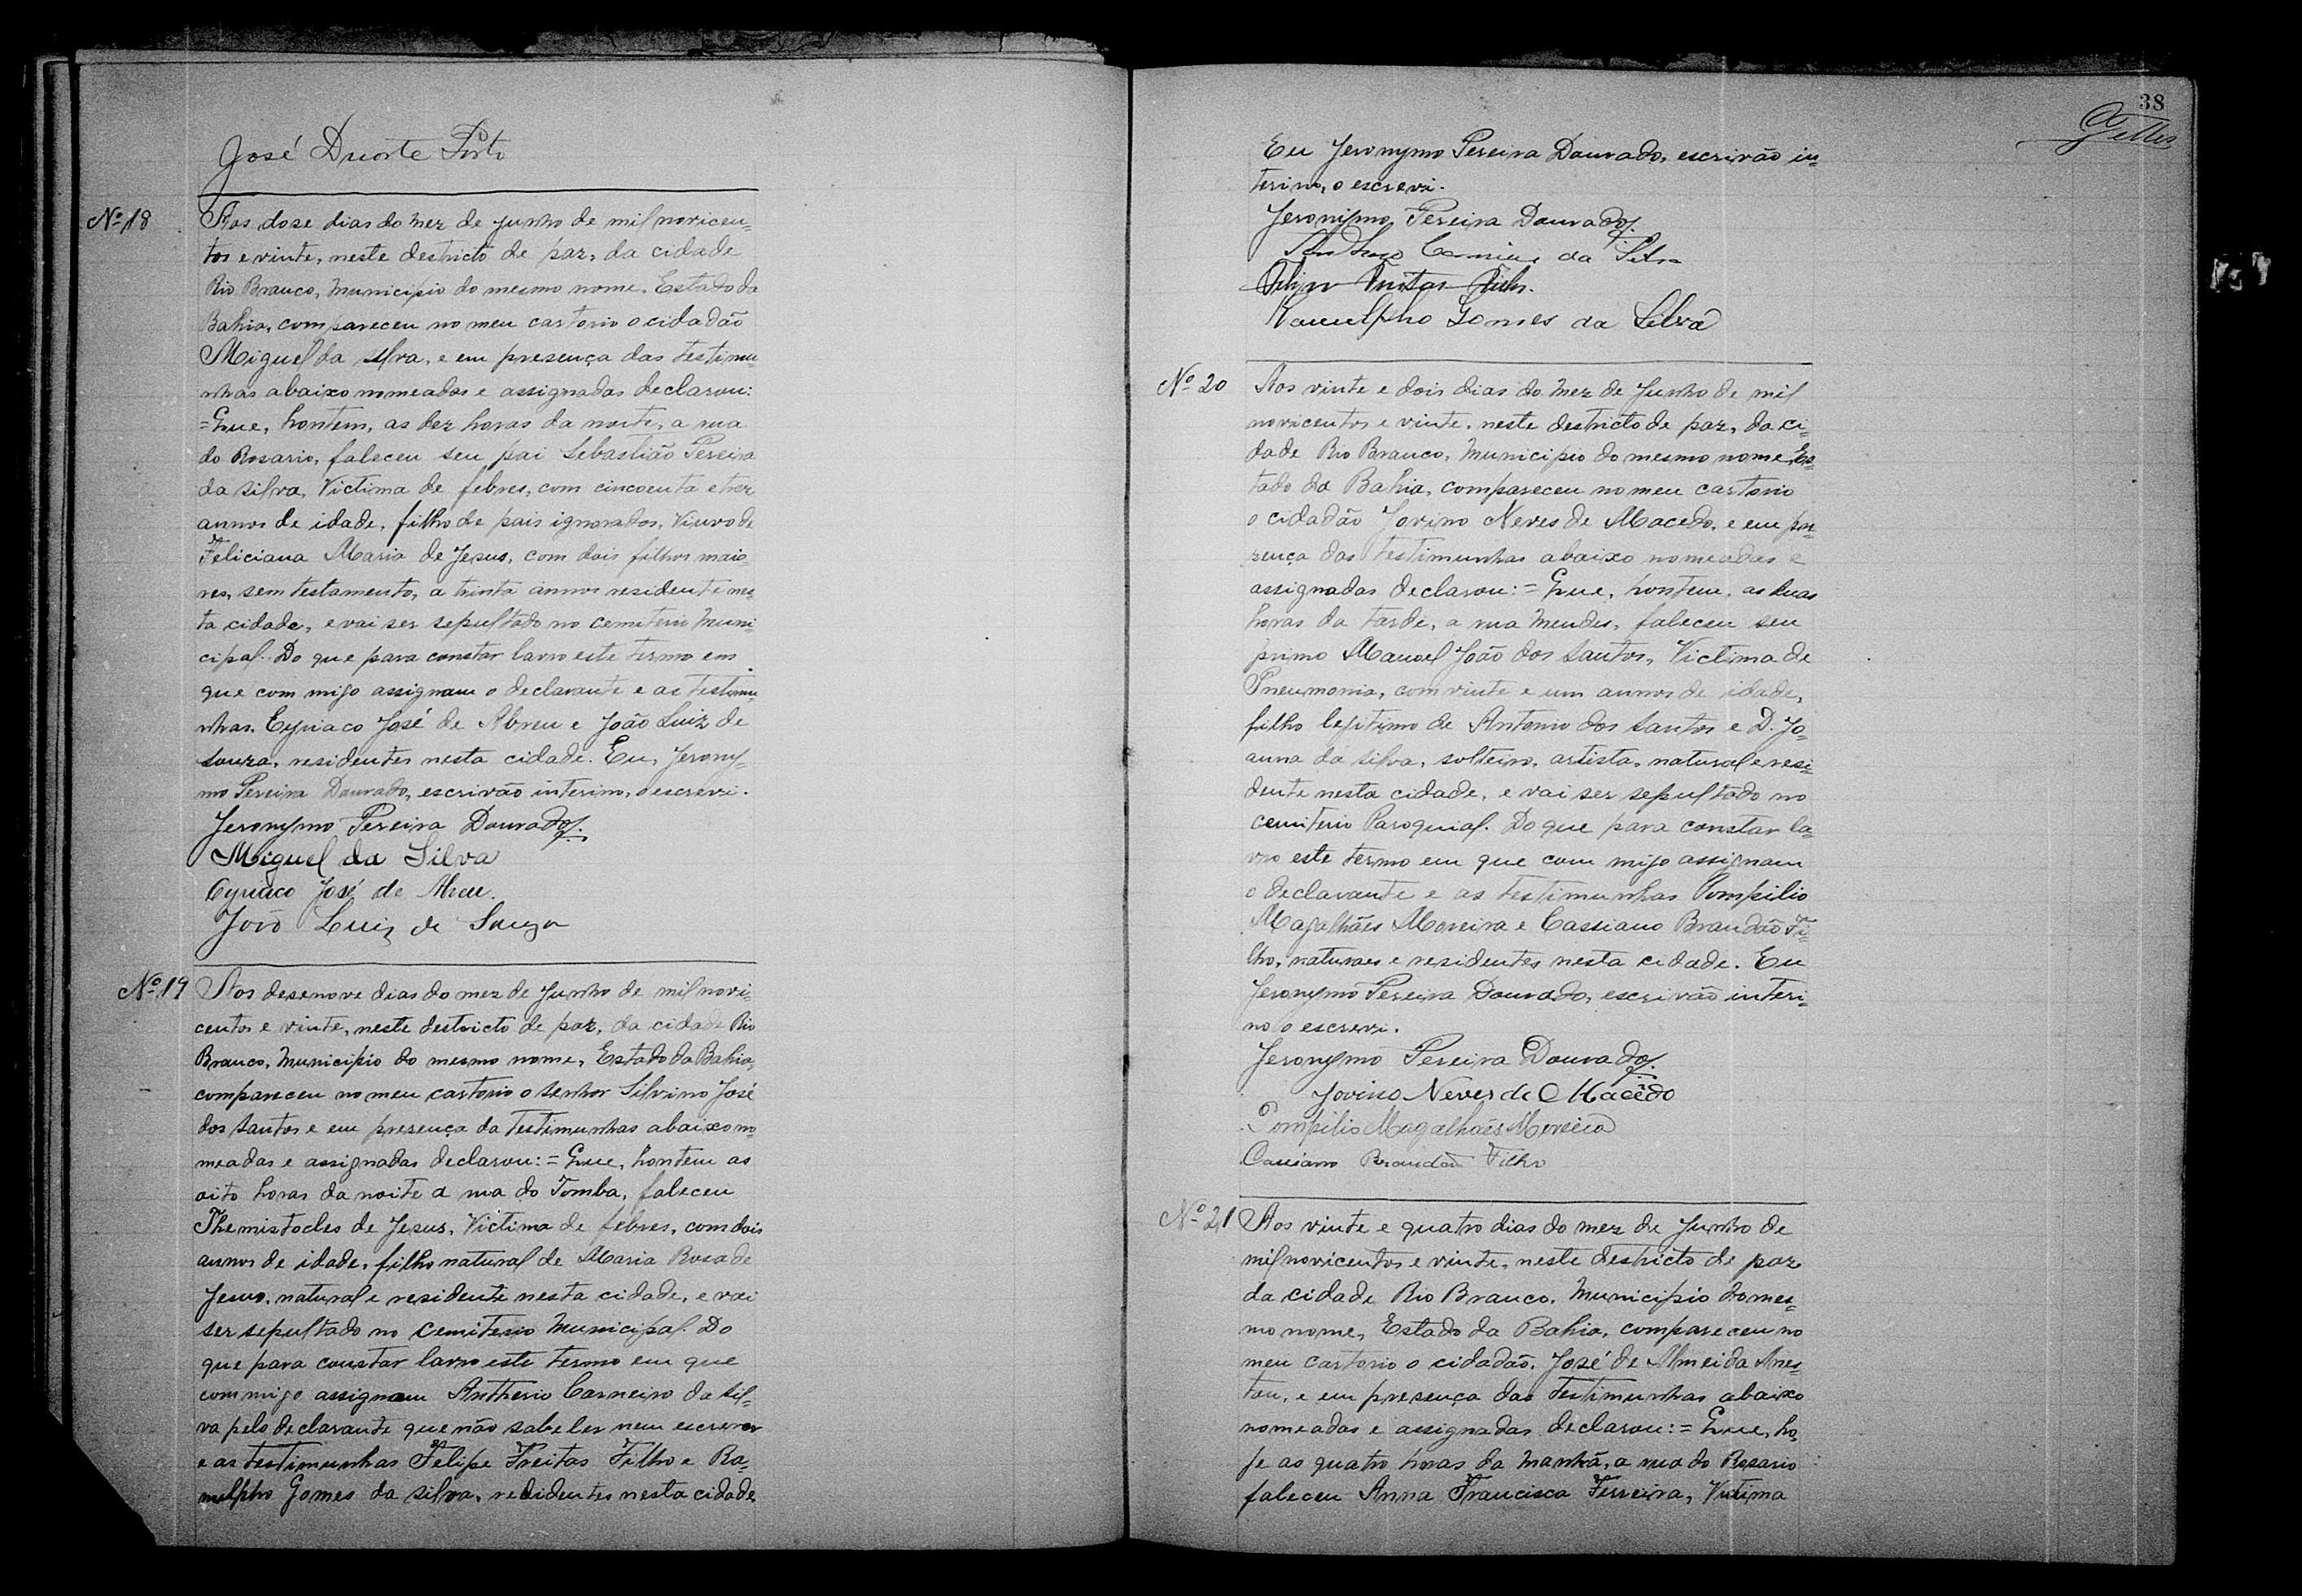 José Duarte Porto
Nº 18
Aos dose dias do mez de Junho de mil novicen-
tos e vinte, neste destricto de paz, da cidade
Rio Branco, Municipio do mesmo nome, Estado da
Bahia, compareceu no meu cartorio o cidadão
Miguel da silva, e em presença das testimu-
nhas abaixo nomeadas e assignadas declarou:
= Que, hontem, as dez horas da noite, a rua
do Rosario, faleceu seu pai Sebastião Pereira
da silva, Victima de febres, com cincoenta e trez
annos de idade, filho de pais ignorados, Viuvo de
Feliciana Maria de Jesus, com dois filhos maio-
res, sem testamento, a trinta annos residente nes-
ta cidade, e vai ser sepultado no cemiterio Muni-
cipal. Do que para constar lavro este termo em
que com migo assignam o declarante e as testimu-
nhas. Cyriaco José de Abreu e João Luiz de
Souza, residentes nesta cidade. Eu, Jerony-
mo Pereira Dourado, escrivão interino, o escrevi.
Jeronymo Pereira Dourado.
Miguel da Silva
Cyriaco José de Abreu.
João Luiz de Souza
Nº 19
Aos desenove dias do mez de Junho de mil novi-
centos e vinte, neste destricto de paz, da cidade Rio
Branco, Municipio do mesmo nome, Estado da Bahia,
compareceu no meu cartorio o senhor Silvino José
dos Santos e em presença da testimunhas abaixo no-
meadas e assignadas declarou: = Que, hontem as
oito horas da noite a rua do Tomba, faleceu
Themistocles de Jesus, Victima de febres, com dois
annos de idade, filho natural de Maria Rosa de
Jesus, natural e residente nesta cidade, e vai
ser sepultado no Cemiterio Municipal. Do
que para constar lavro este termo em que
com migo assignam Antherio Carneiro da Sil-
va pelo declarante que não sabe ler nem escrever
e as testimunhas Felipe Freitas Filho e Ra-
nulpho Gomes da silva, residentes nesta cidade
38
Eu Jeronymo Pereira Dourado, escrivão in-
terino, o escrevi.
Jeronymo Pereira Dourado.
da Silva
Felipe Freitas Filho.
Ranulpho Gomes da Silva
Nº 20
Aos vinte e dois dias do Mez de Junho de mil
novicentos e vinte, neste destricto de paz, da ci-
dade Rio Branco, Municipio do mesmo nome, Es-
tado da Bahia, compareceu no meu cartorio
o cidadão Jovino Neves de Macedo, e em pre-
sença das testimunhas abaixo nomeadas e
assignadas declarou: = Que, hontem, as duas
horas da tarde, a rua Mendes, faleceu seu
primo Manoel João dos Santos, Victima de
Pneumonia, com vinte e um annos de idade,
filho legitimo de Antonio dos Santos e D. Jo-
anna da Silva, solteiro, artista, natural e resi-
dente nesta cidade, e vai ser sepultado no
cemiterio Paroquial. Do que para constar la-
vro este termo em que com migo assignam
o declarante e as testimunhas Pompilio
Magalhães Moreira e Cassiano Brandão Fi-
lho, naturaes e residentes nesta cidade. Eu
Jeronymo Pereira Dourado, escrivão interi-
no o escrevi.
Jeronymo Pereira Dourado.
Jovino Neves de Macêdo
Pompilio Magalhães Moreira
Cassiano Brandão Filho
Nº 21
Aos vinte e quatro dias do mez de Junho de
mil novicentos e vinte, neste destricto de paz
da cidade Rio Branco, Municipio do mes-
mo nome, Estado da Bahia, compareceu no
meu cartorio o cidadão, José de Almeida
e em presença das testimunhas abaixo
nomeadas e assignadas declarou: = Que, ho-
je as quatro horas da manhã, a rua do Rosario
faleceu Anna Francisca Ferreira, Victima